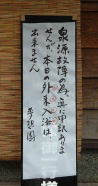 泉源故障の為、真に申訳ありま
せんが本日の外来入浴は
出来ません
夢想園